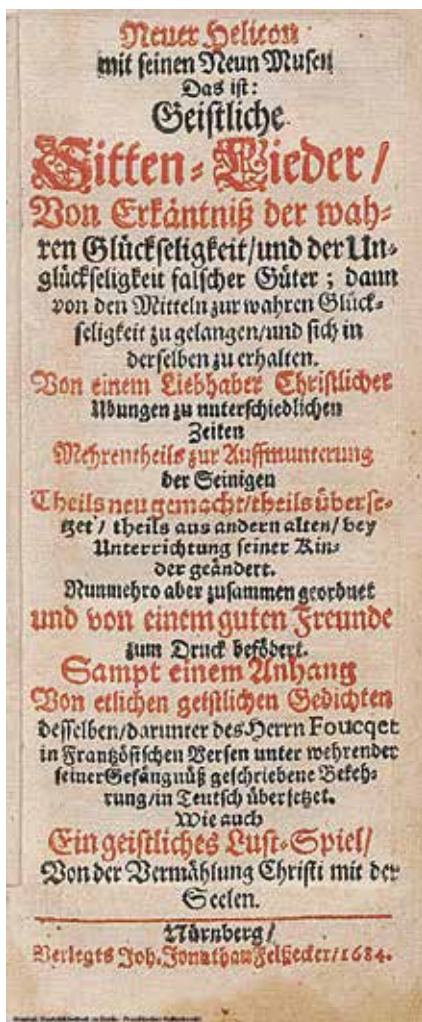 Neuer Helicon
mit seinen Neun Musen
Das ist:
Geistliche
Sitten-Lieder/
Von Erkäntniß der wah-
ren Glückseligkeit/und der Un-
glückseligkeit falscher Güter; dann
von den Mitteln zur wahren Glück-
seligkeit zu gelangen/und sich in
derselben zu erhalten.
Von einem Liebhaber Christlicher
Ubungen zu unterschiedlichen
Zeiten
Mehrentheils zur Auffmunterung
der Seinigen
Theils neu gemacht/theils überse-
tzet/ theils aus andern alten/ bey
Unterrichtung seiner Kin-
der geändert.
Nunmehro aber zusammen geordnet
und von einem guten Freunde
zum Druck befödert.
Sampt einem Anhang
Von etlichen geistlichen Gedichten
desselben/darunter des Herrn Foucqet
in Frantzösischen Versen unter wehrender
seiner Gefängnüß geschriebene Bekeh-
rung/in Teutsch übersetzet.
Wie auch
Ein geistliches Lust-Spiel/
Von der Vermählung Christi mit der
Seelen.
Nürnberg/
Verlegts Joh. Jonathan Felßecker/1684.